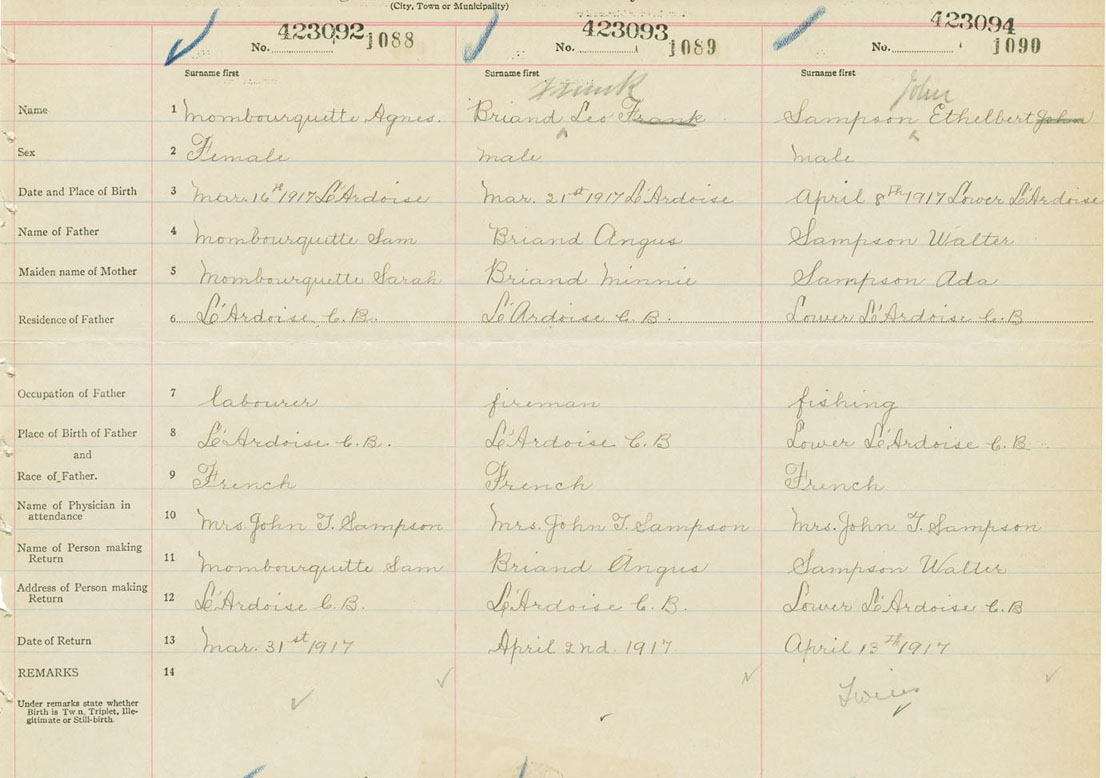 (City, Town or Municipality)
423092 423093 423094
No. 1088 No. 1089 No. 1090
Surname first Surname first Surname first
Frank John
Name 1 Mombourquette Agnes. Briand Leo Frank Sampson Ethelbert John
Sex 2 Female male male
Date and Place of Birth 3 Mar. 16th 1917 L'Ardoise Mar. 21st 1917 L'Ardoise April 8th 1917 Lower L'Ardoise
Name of Father 4 Mombourquette Sam Briand Angus Sampson Walter
Maiden name of Mother 5 Mombourquette Sarah Briand Minnie Sampson Ada
Residence of Father 6 L'Ardoise C.B. L'Ardoise C.B. Lower L'Ardoise C.B
Occupation of Father 7 labourer fireman fishing
Place of Birth of Father 8 L'Ardoise C.B. L'Ardoise C.B Lower L'Ardoise C.B.
and
Race of Father. 9 French French French
Name of Physician in
attendance 10 Mrs. John T. Sampson Mrs. John T. Sampson Mrs. John T. Sampson
Name of Person making
Return 11 Mombourquette Sam Briand Angus Sampson Walter
Address of Person making
Return 12 L'Ardoise C.B. L'Ardoise C.B. Lower L'Ardoise C.B
Date of Return 13 Mar. 31st 1917 April 2nd. 1917 April 13th 1917
REMARKS 14
Twins
Under remarks state whether
Birth is Twn, Triplet, Ille-
gitimate or Still-birth.